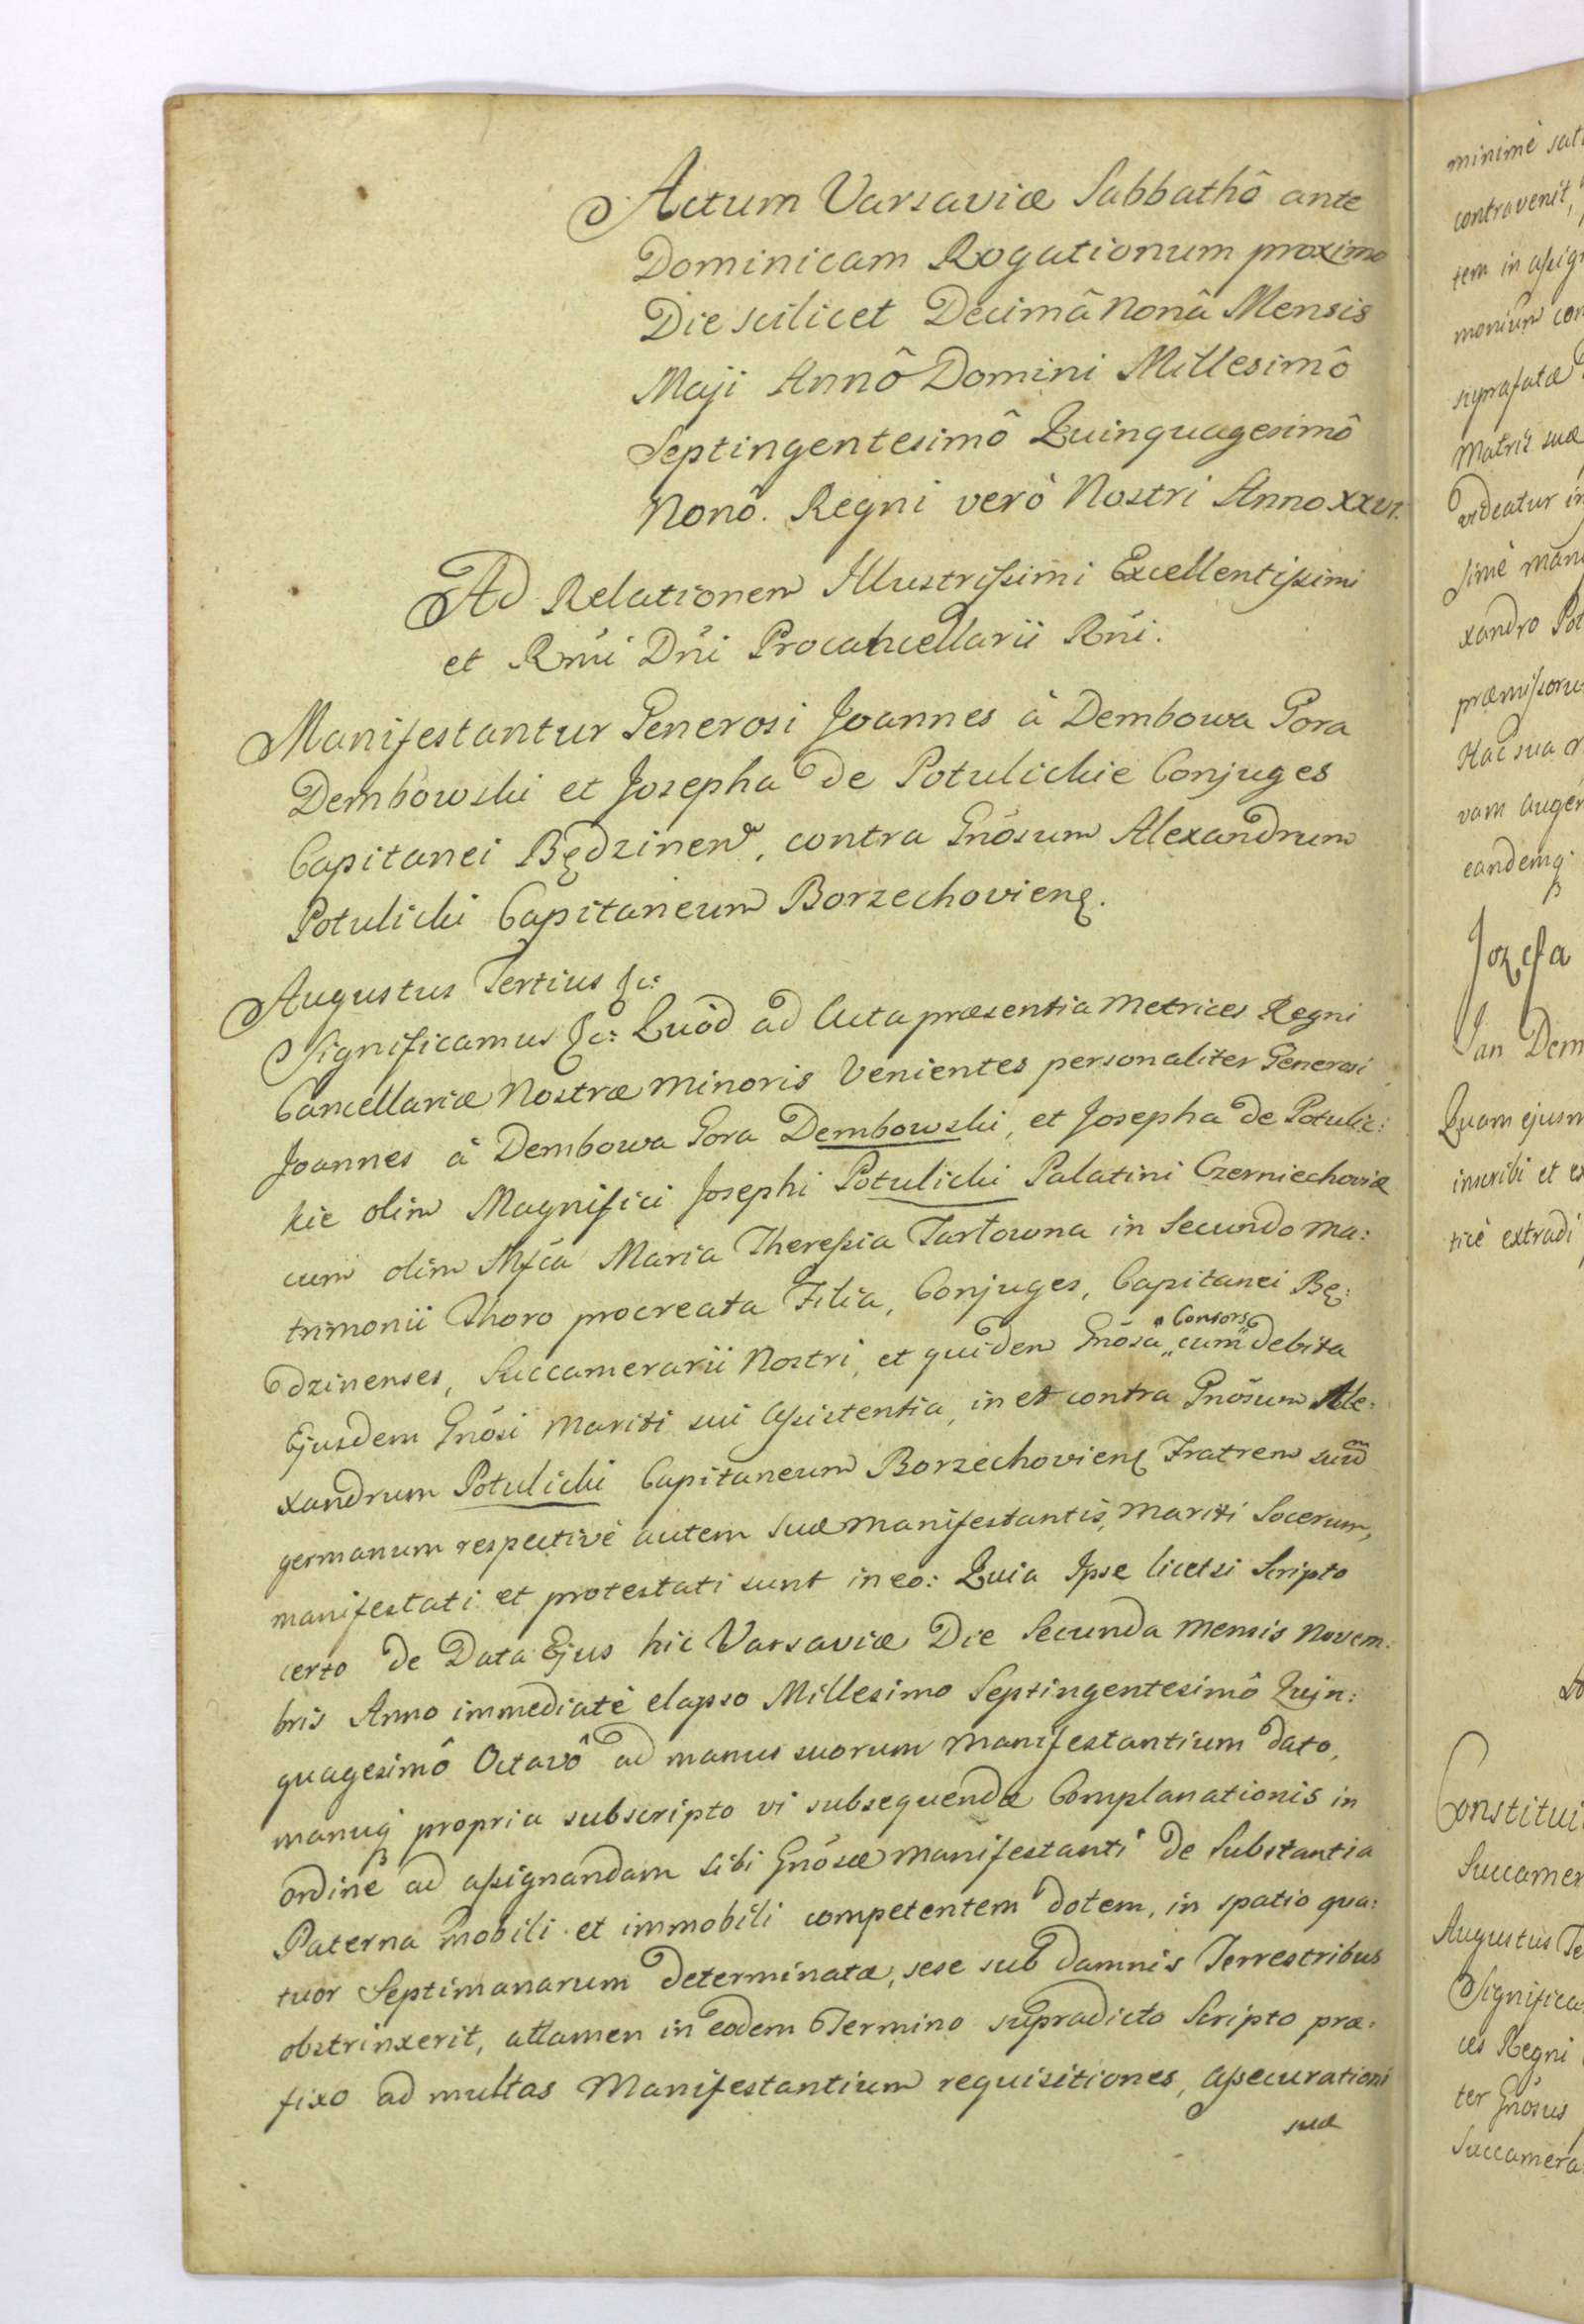 Actum Varsaviæ Sabbathô ante
Dominicam Rogationum proximo
Die scilicet Decimâ Nonâ Mensis
Maji Annô Domini Millesimô
Septingentesimô Quinquagesimô
Nonô. Regni verò Nostri Anno XXVI.
Ad Relationem Illustrissimi Excellentissimi
et Rmi Dni Procancellarii Rni.
Manifestantur Generosi Joannes à Dembowa Gora
Dembowski et Josepha de Potulickie Conjuges
Capitanei Będzinen, contra Gnôsum Alexandrum
Potulicki Capitaneum Borzechovien.
Augustus Tertius &c:
Significamus &c: Quòd ad Acta præsentia Metrices Regni
Cancellariæ Nostræ Minoris Venientes personaliter Generosi
Joannes à Dembowa Gora Dembowski, et Josepha de Potulic:
kie olim Magnifici Josephi Potulicki Palatini Czerniechoviæ
cum olim Mfca Maria Theressia Tarłowna in Secundo Ma:
trimonii Thoro procreata Filia, Conjuges, Capitanei Bę:
dzinenses, Succamerarii Nostri, et quidem Gnôsa „Consors" cum debita
Ejusdem Gnôsi Mariti sui Assistentia, in et contra Gnôsum Ale:
xandrum Potulicki Capitaneum Borzechovien Fratrem suum
germanum respectivè autem suæ Manifestantis, Mariti Socerum,
manifestati et protestati sunt in eo: Quia Ipse licetsi Scripto
certo de Data Ejus hic Varsaviæ Die Secunda Mensis Novem:
bris Anno immediatè elapso Millesimo Septingentesimô Quin:
quagesimô Octavô ad manus suorum Manifestantium dato,
manuq propria subscripto vi subsequendæ Complanationis in
ordine ad assignandam sibi Gnôsæ Manifestanti de Substantia
Paterna Mobili et immobili competentem dotem, in spatio qua:
tuor Septimanarum determinatæ, sese sub damnis Terrestribus
obstrinxerit, attamen in eodem Termino supradicto Scripto præ:
fixo ad multas Manifestantium requisitiones, assecurationi
suæ
minimè
contravenit,
tem in
suprafatæ
Matris suæ
videatur
xandro
Hac sua
vam
eandemq
Jozefa
Jan Dem
Quam ejusm
inscribi et
ticè extradi
Constitui
Succamer
Augustus Te
Significa
ces Regni
ter Gnôsus
Succamera